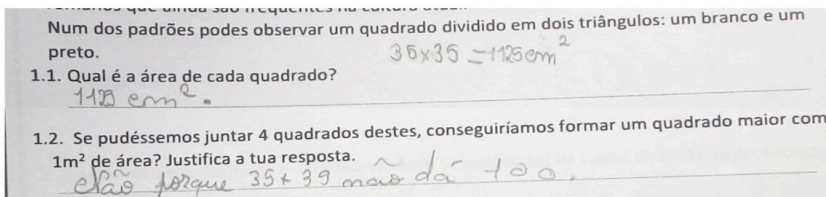 que ainda são frequentes na cultura atual.
Num dos padrões podes observar um quadrado dividido em dois triângulos: um branco e um
preto.
35x35=1125cm²
1.1. Qual é a área de cada quadrado?
1125 cm².
1.2. Se pudéssemos juntar 4 quadrados destes, conseguiríamos formar um quadrado maior com
1m² de área? Justifica a tua resposta.
Não porque 35+39 não dá 100.